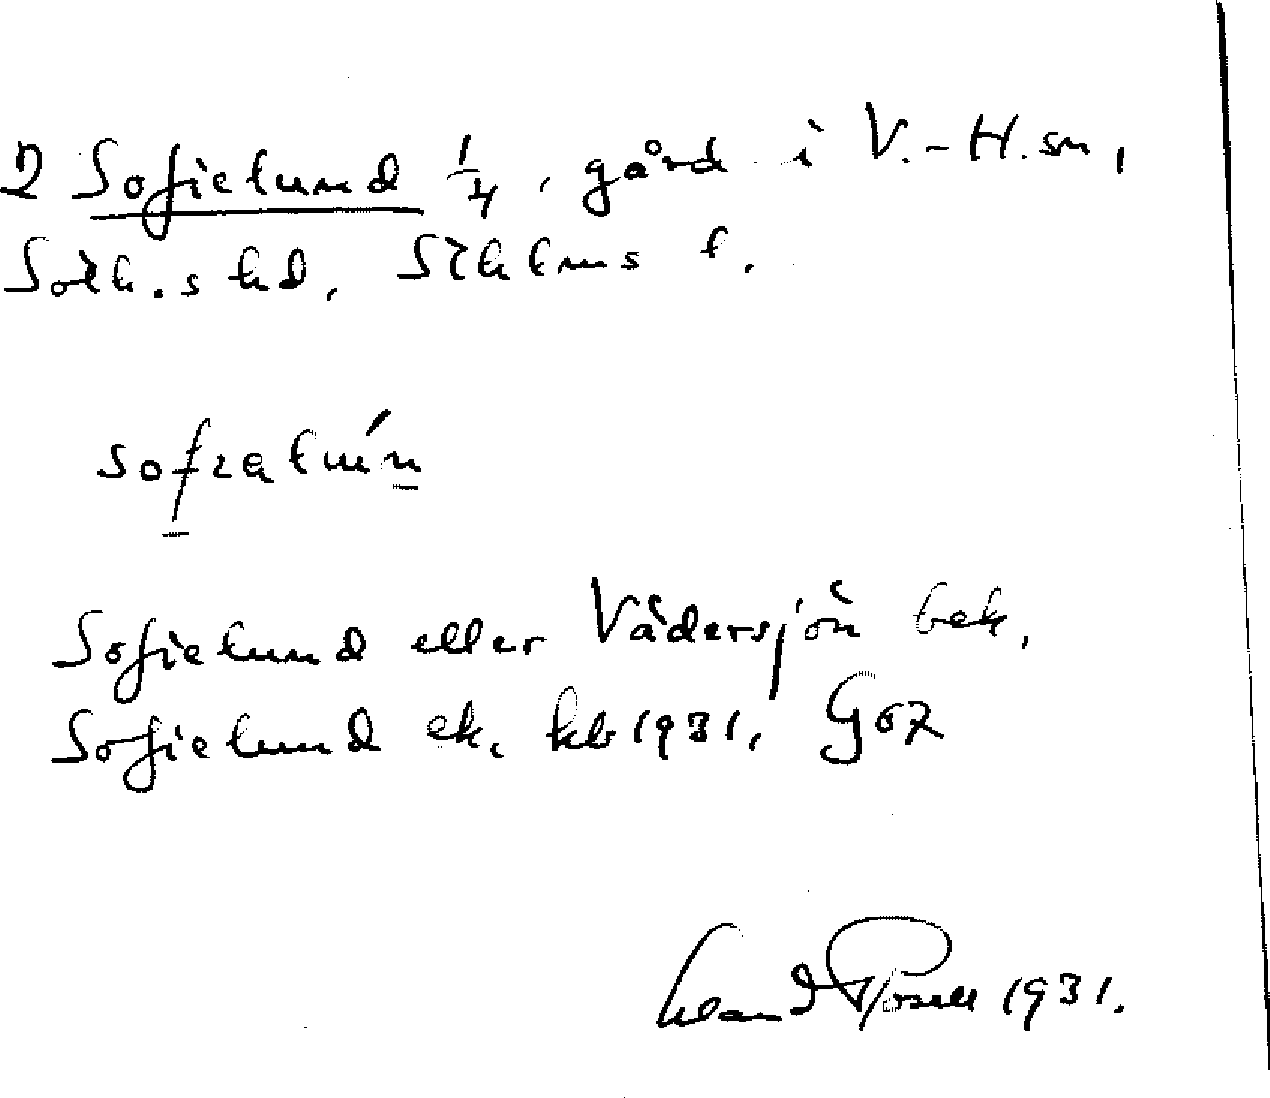 2 Sofielund 1/4, gård i V.-H. sn,
Soth.s hd, Sthlms l.
Sofielund eller Vädersjön bek.
Sofielund ek. kb 1931.
Erland Rosell 1931.